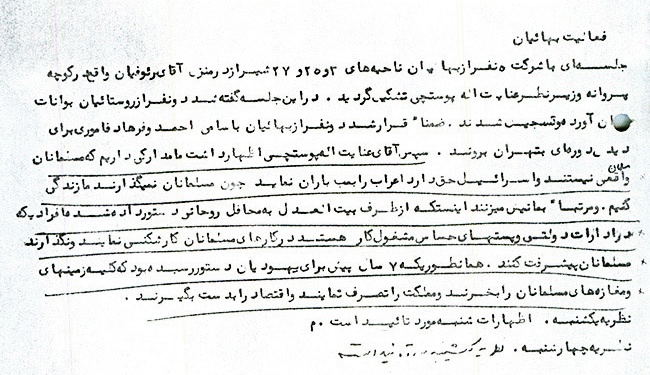 فعالیت بهائیان
جلسه‌ای با شرکت ۵ نفر از بهائیان ناحیه‌های ۲و۲۵و ۲۷ شیراز در منزل آقای رئوفیان واقع در کوچه
پروانه و زیر نظر عنایت اله پوستچی تشکیل گردید . در این جلسه گفته شد دو نفر از روستائیان بوانات
آورده و تسجیل شدند . ضمنا" قرار شد دو نفر از بهائیان با سامی احمد و فرهاد فاموری برای
دیدن دوره‌ای بتهران بروند . سپس آقای عنایت اله پوستچی اظهار داشت ما مدارکی داریم که مسلمانان
واقعی نیستند و اسرائیل حق دارد اعراب را بمب باران نماید چون مسلمانان نمیگذارند ما زندگی
کنیم . و مرتبا" بما نیش میزنند اینستکه از طرف بیت العدل به محافل روحانی دستور داده شد ما فرادیکه
در ادارات دولتی و پستهای حساس مشغول کار هستند در کارهای مسلمانان کارشکنی نمایند و نگذارند
مسلمانان پیشرفت کنند . همانطوریکه ۷ سال پیش برای یهودیان دستور رسیده بود که کلیه زمینهای
و مغازه‌های مسلمانان را بخرند و مملکت را تصرف نمایند و اقتصاد را بدست بگیرند .
نظریه یکشنبه . اظهارات شنبه مورد تائید است . م
نظریه چهارشنبه . نظریه یکشنبه مورد تائید است